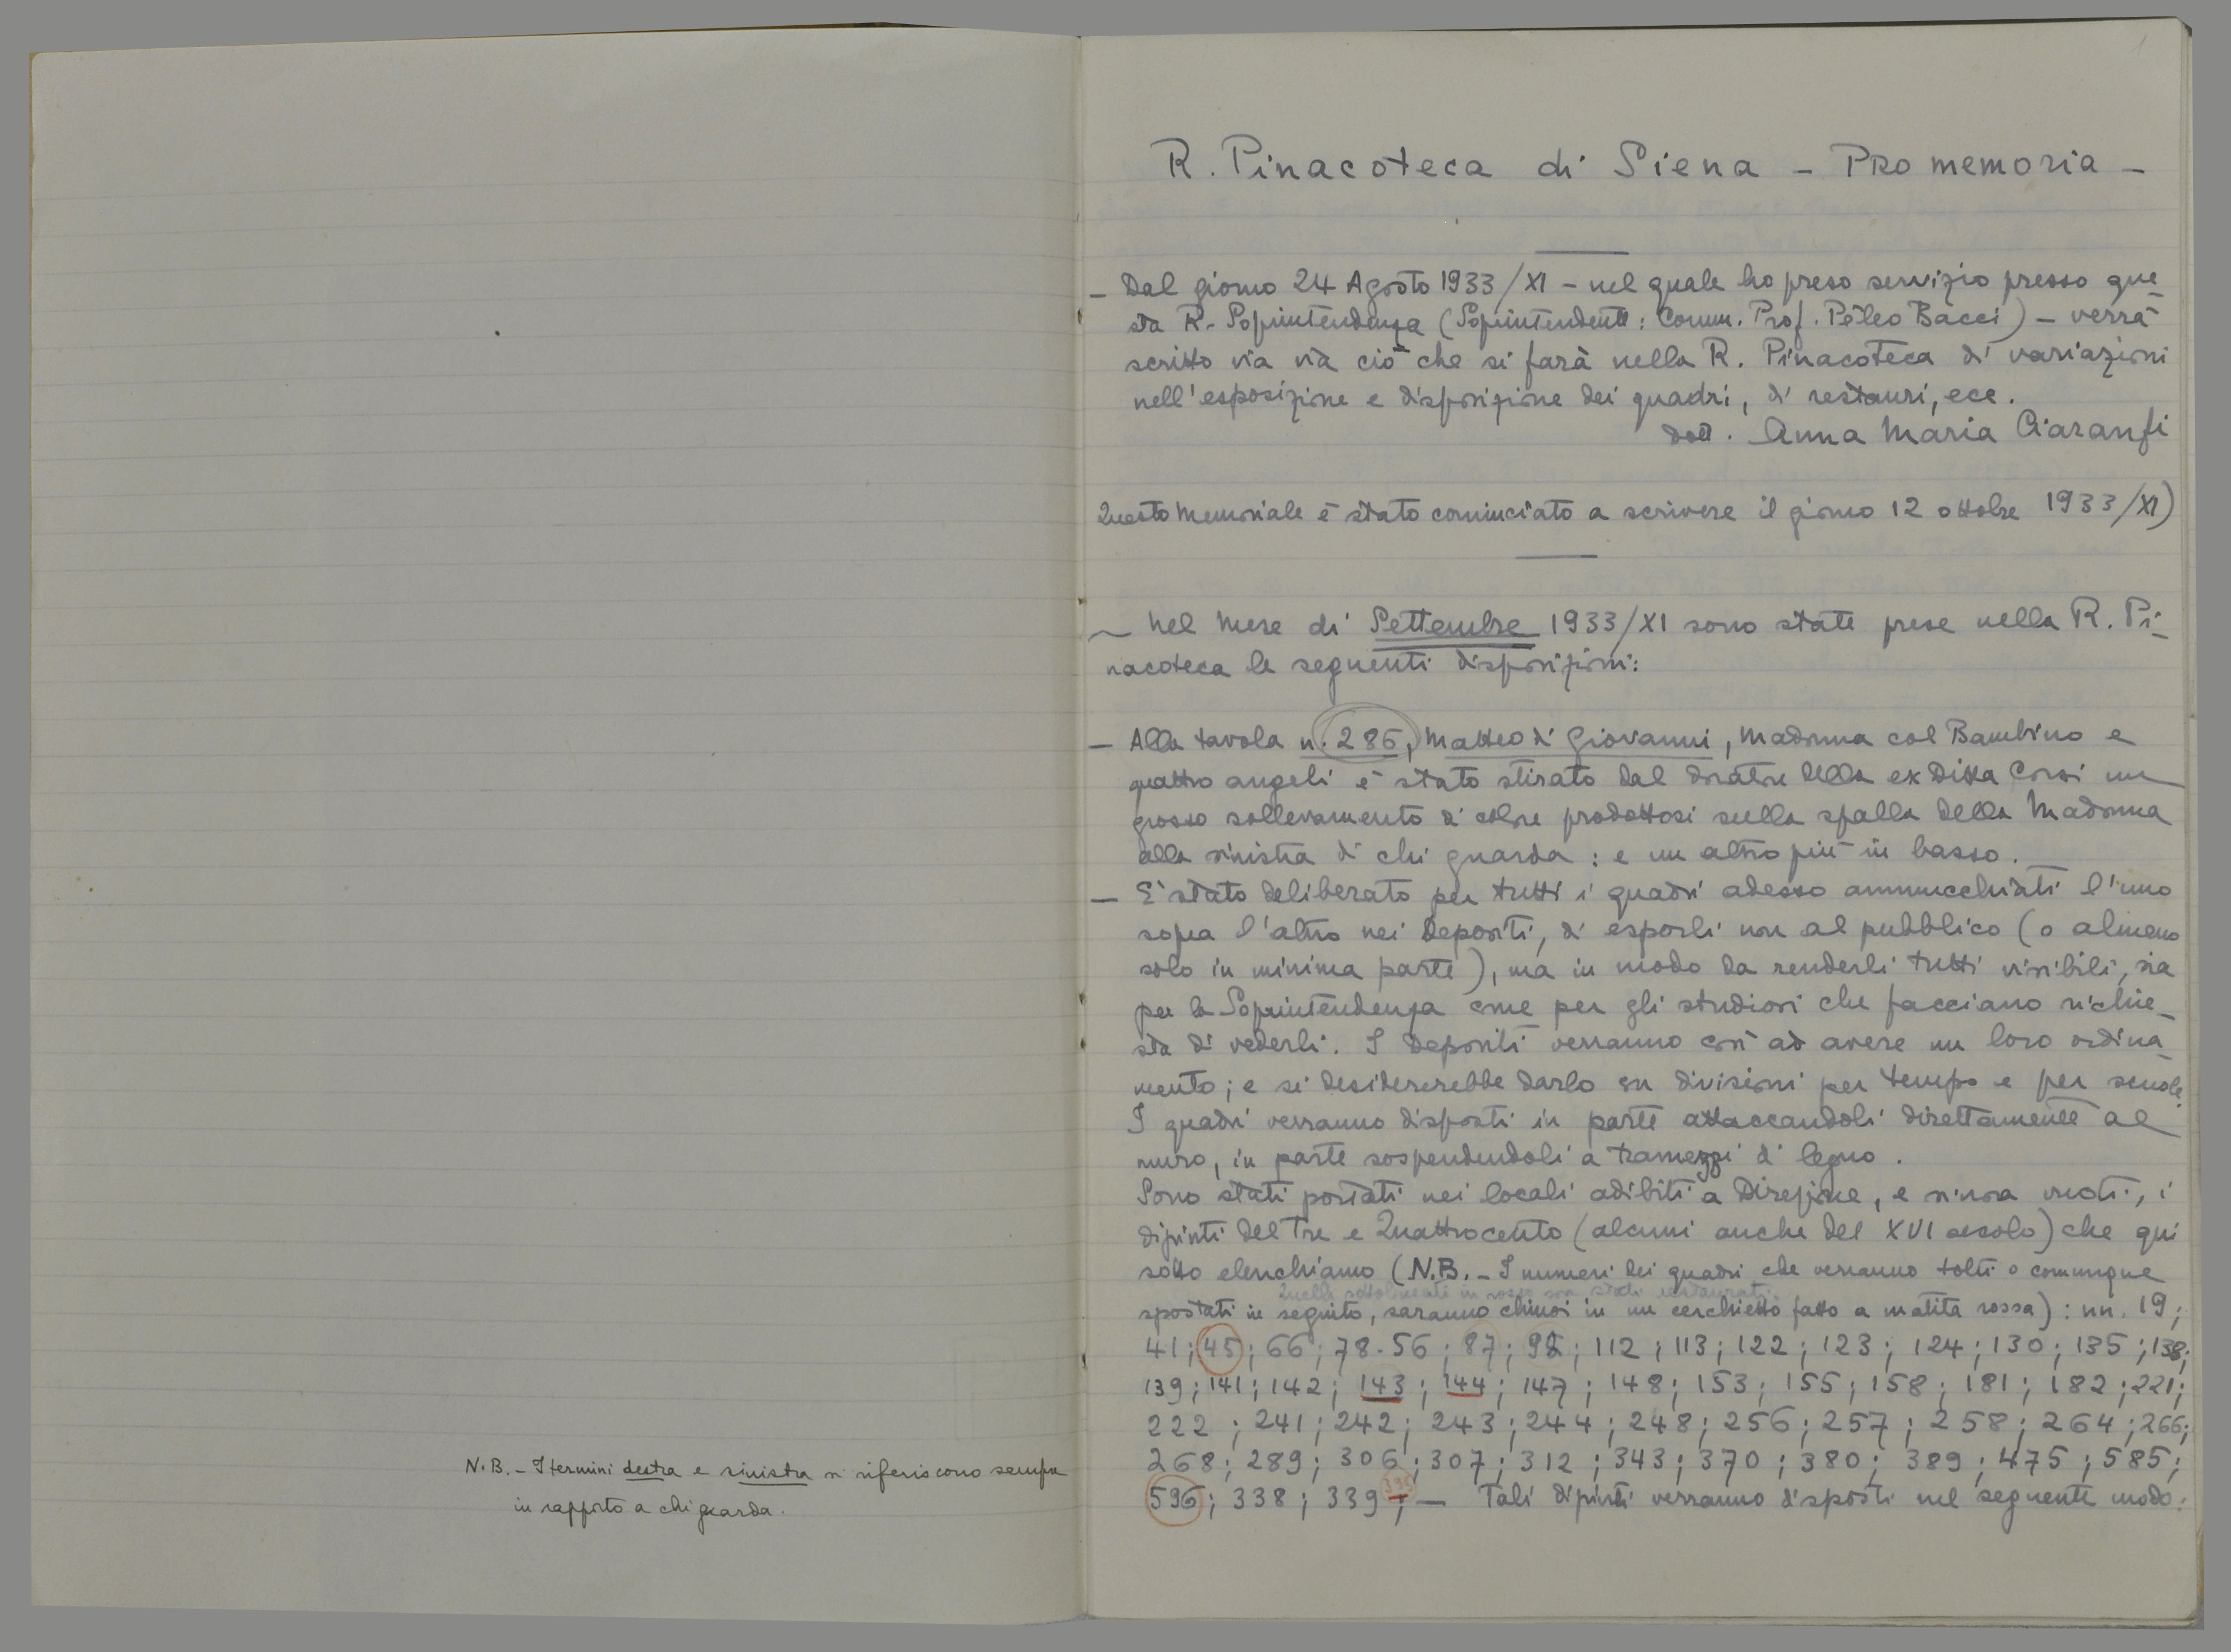 N.B. - I termini destra e sinistra si riferiscono sempre
in rapporto a chi guarda.
1
R. Pinacoteca di Siena - Pro memoria -
- Dal giorno 24 Agosto 1933/XI - nel quale ho preso servizio presso que-
sta R. Soprintendenza (Soprintendente: Comm. Prof. Pèleo Bacci) - verrà
scritto via via ciò che si farà nella R. Pinacoteca di variazioni
nell'esposizione e disposizione dei quadri, di restauri, ecc.
dott. Anna Maria Ciaranfi
Questo memoriale è stato cominciato a scrivere il giorno 12 ottobre 1933/XI)
~ Nel mese di Settembre 1933/XI sono state prese nella R. Pi-
nacoteca le seguenti disposizioni:
- Alla tavola n. 286, Matteo di Giovanni, Madonna col Bambino e
quattro angeli è stato stirato dal doratore della ex Ditta Corsi un
grosso sollevamento di colore prodottosi sulla spalla della Madonna
alla sinistra di chi guarda: e un altro più in basso.
- E' stato deliberato per tutti i quadri adesso ammucchiati l'uno
sopra l'altro nei Depositi, di esporli non al pubblico (o almeno
solo in minima parte), ma in modo da renderli tutti visibili, sia
per la Soprintendenza come per gli studiosi che facciano richie-
sta di vederli. I Depositi verranno così ad avere un loro ordina-
mento; e si desidererebbe darlo con divisioni per tempo e per scuole.
I quadri verranno disposti in parte attaccandoli direttamente al
muro, in parte sospendendoli a tramezzi di legno.
Sono stati portati nei locali adibiti a Direzione, e sinora vuoti, i
dipinti del Tre e Quattrocento (alcuni anche del XVI secolo) che qui
sotto elenchiamo (N.B. - I numeri dei quadri che verranno tolti o comunque
Quelli sottolineati in rosso son stati restaurati.
spostati in seguito, saranno chiusi in un cerchietto fatto a matita rossa): nn. 19;
41; 45; 66; 78-56; 87; 98; 112; 113; 122; 123; 124; 130; 135; 138;
139; 141; 142; 143; 144; 147; 148; 153; 155; 158; 181; 182; 221;
222; 241; 242; 243; 244; 248; 256; 257; 258; 264; 266;
268; 289; 306; 307; 312; 343; 370; 380; 389; 475; 585;
596; 338; 339; - Tali dipinti verranno disposti nel seguente modo: